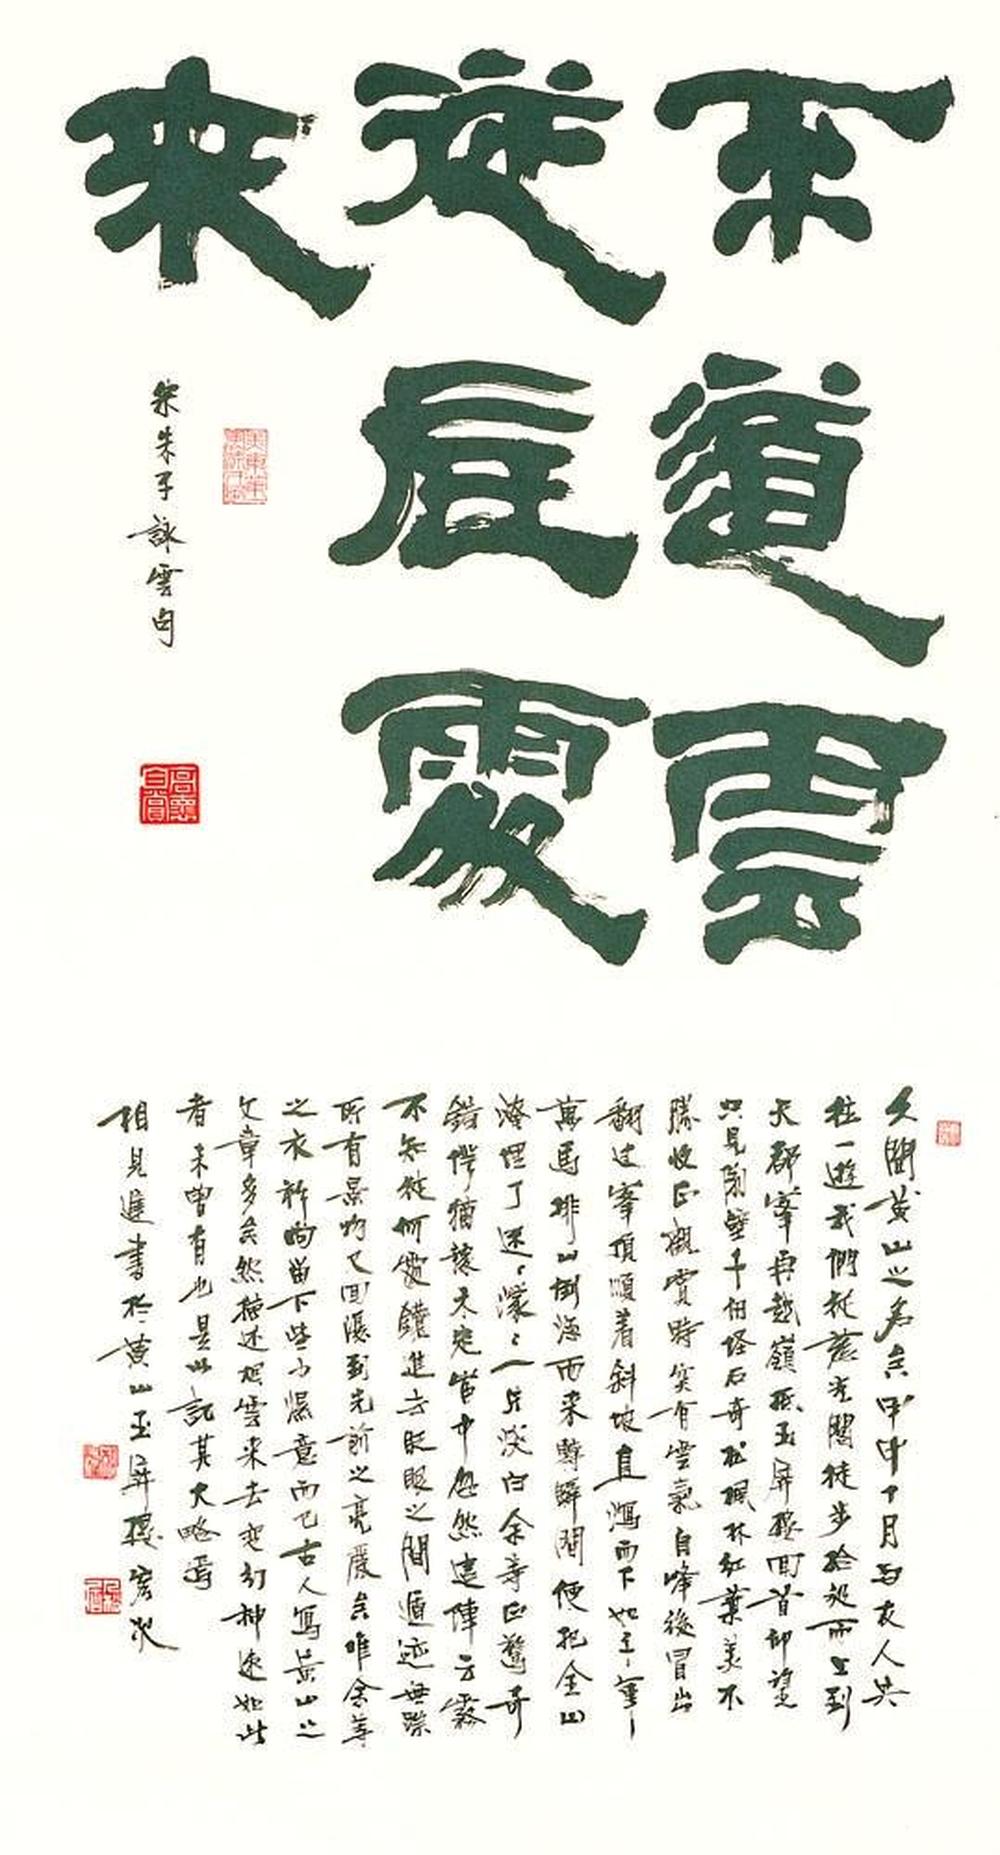 不道雲
從底處
來
宋朱子詠雲句
久聞黄山之名矣甲申十月与友人共
往一遊我們從慈光閣徒步拾级而上到
天都峯再越嶺抵玉屏樓回首仰望
只見削壁千仞怪石奇松楓林紅葉美不
勝收正觀賞時突有雲氣自峰後冒出
翻过峯頂順着斜坡直瀉而下如千軍
萬馬排山倒海而来轉瞬間便把全山
淹埋了迷々濛々一片淡白余等正驚奇
錯愕猶豫未定當中忽然這陣雲霧
不知從何處鑽進去眨眼之間遁迹無踪
所有景物又回復到先前之亮麗矣唯余等
之衣衿尚留下些少濕意而已古人寫黄山之
文章多矣然描述烟雲来去变幻神速如此
者未曾有也是以記其大略焉
相見進書於黄山玉屏樓